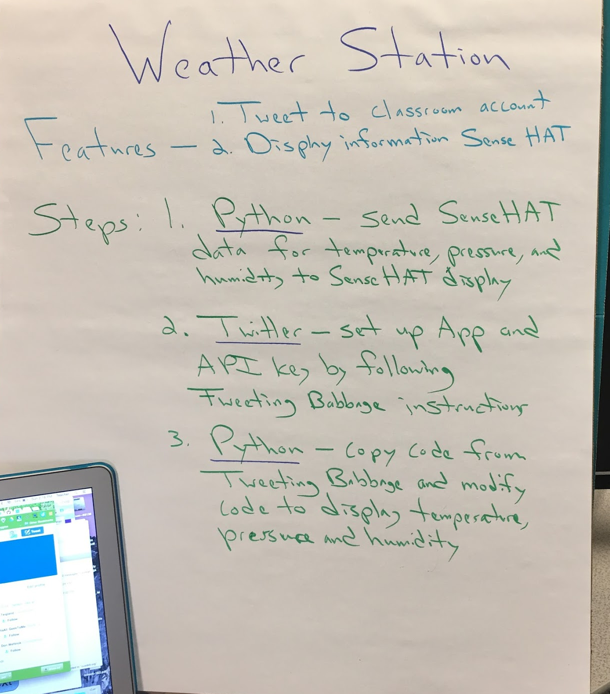 Weather Station
1. Tweet to classroom account
Features — 2. Display information Sense HAT
Steps: 1. Python — send SenseHAT
data for temperature, pressure, and
humidity to SenseHAT display
2. Twitter — set up App and
API key by following
Tweeting Babbage instructions
3. Python — copy code from
Tweeting Babbage and modify
code to display temperature,
pressure and humidity